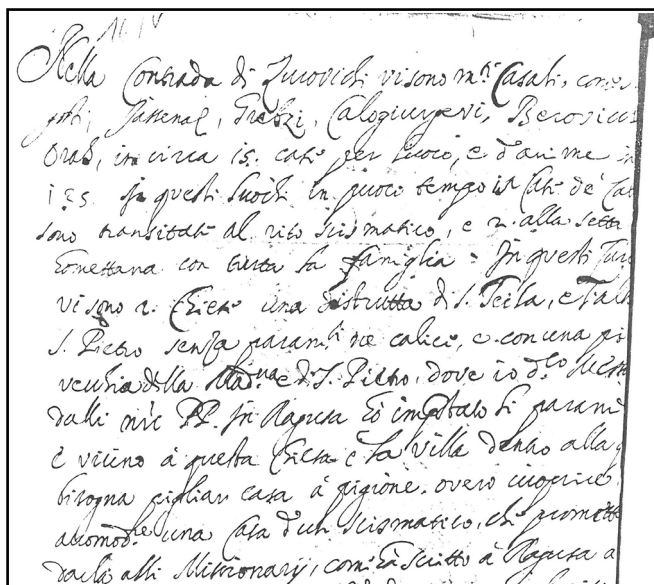 Nella Contrada di Zurovichi vi sono m.ti Casali, come
Jassenaz, Trebzi, Calogiurgevi, Berovicus
Oras, in circa 15. case per luoco, e d'anime in
125. In questi luochi in puoco tempo case de Cat
sono transitate al rito scismatico, e 2. alla setta
tomettana con tutta la famiglia. In questi
vi sono 2. Chiese una distrutta di S. Tecla, e l'alt
S. Pietro senza param.ti ne calice, e con una
vechia della Mad.na e di S. Pietro, dove io d.to
dalli miei PP. in Ragusa ho impetrato li param
è vicino à questa Chiesa è la villa dentro alla
bisogna pigliar casa à pigione. overo
accomod.re una Casa d'un scismatico, che promette
darla alli Missionarij, come hà scritto à Ragusa a